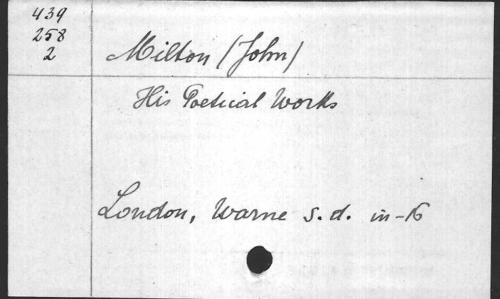 439
258
2
Milton (John)
His Poetical Works
London, Warne s.d. in-16